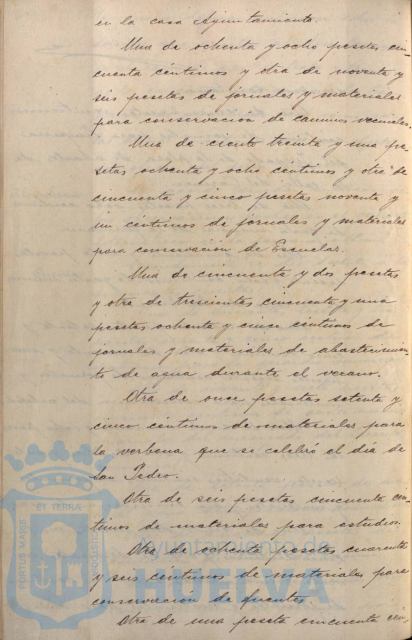 en la casa Ayuntamiento.
Una de ochenta y ocho pesetas cin-
cuenta céntimos y otra de noventa y
seis pesetas de jornales y materiales
para conservación de caminos vecinales.
Una de ciento treinta y una pe-
setas ochenta y ocho céntimos y otra de
cincuenta y cinco pesetas noventa y
un céntimos de jornales y materiales
para conservación de Escuelas.
Una de cincuenta y dos pesetas
y otra de trescientas cincuenta y una
pesetas ochenta y cinco céntimos de
jornales y materiales de abastecimien-
to de agua durante el verano.
Otra de once pesetas setenta y
cinco céntimos de materiales para
la verbena que se celebró el día de
San Pedro.
Otra de seis pesetas cincuenta cén-
timos de materiales para estudios.
Otra de ochenta pesetas cuarenta
y seis céntimos de materiales para
conservación de fuentes.
Otra de una peseta cincuenta cén-
PORTUS MARIS ET TERRÆ CUSTODIA
Ayuntamiento de
HUELVA